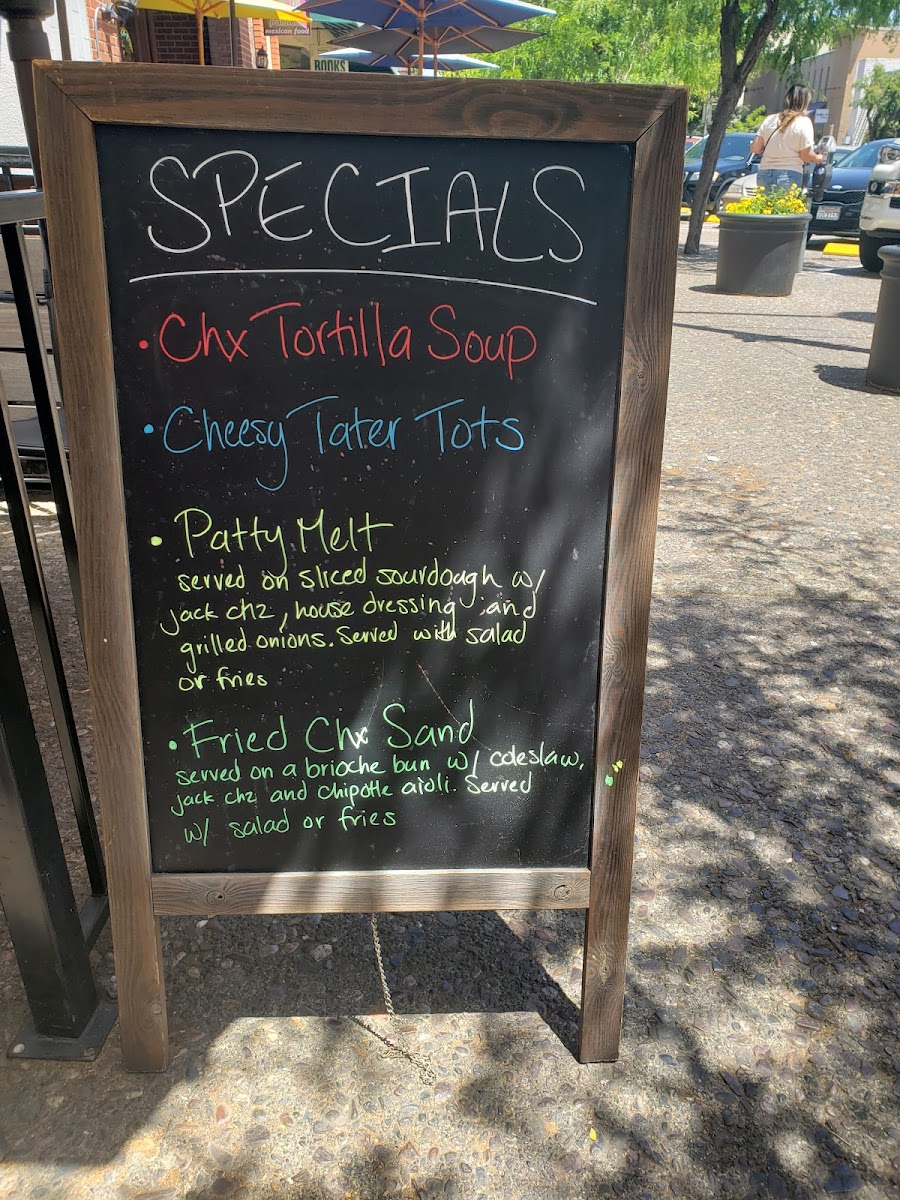 mexican food
BOOKS
SPECIALS
• Chx Tortilla Soup
• Cheesy Tater Tots
• Patty Melt
served on sliced sourdough w/
jack chz, house dressing and
grilled onions. Served with salad
or fries
• Fried Chx Sand
served on a brioche bun w/ coleslaw,
jack chz and chipotle aioli. Served
w/ salad or fries